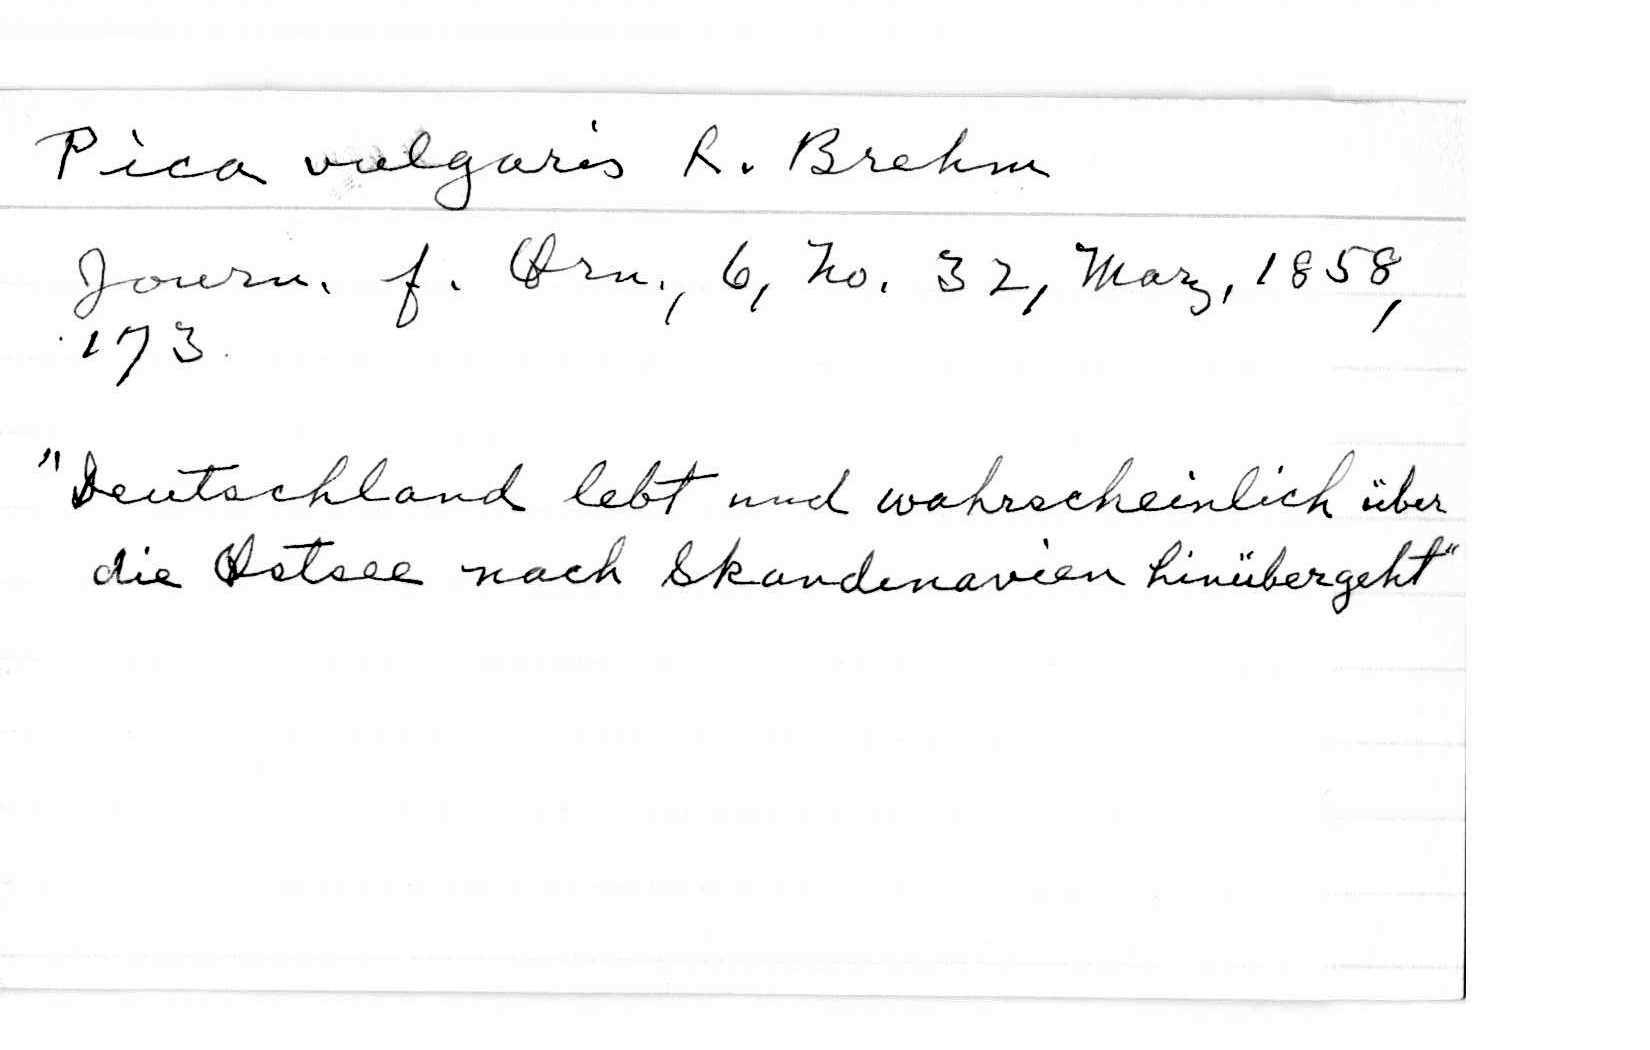 Pica vulgaris R. Brehm
Journ. f. Orn., 6, No. 32, Marz, 1858,
173.
"Deutschland lebt und wahrscheinlich über
die Ostsee nach Skandinavien hinübergeht"